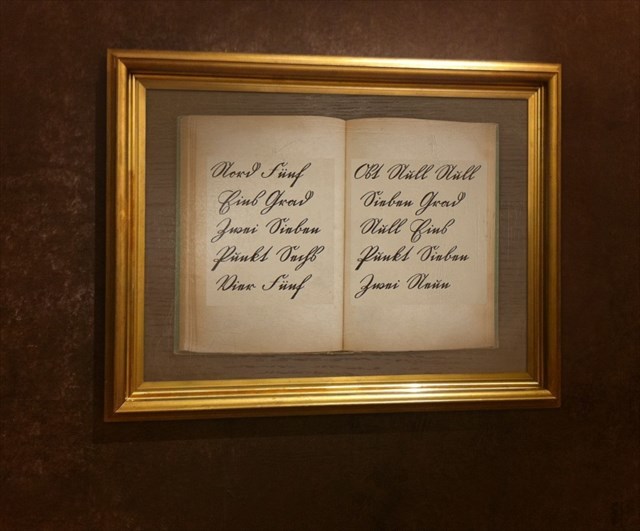 Nord Fünf
Eins Grad
Zwei Sieben
Punkt Sechs
Vier Fünf
Ost Null Null
Sieben Grad
Null Eins
Punkt Sieben
Zwei Neun